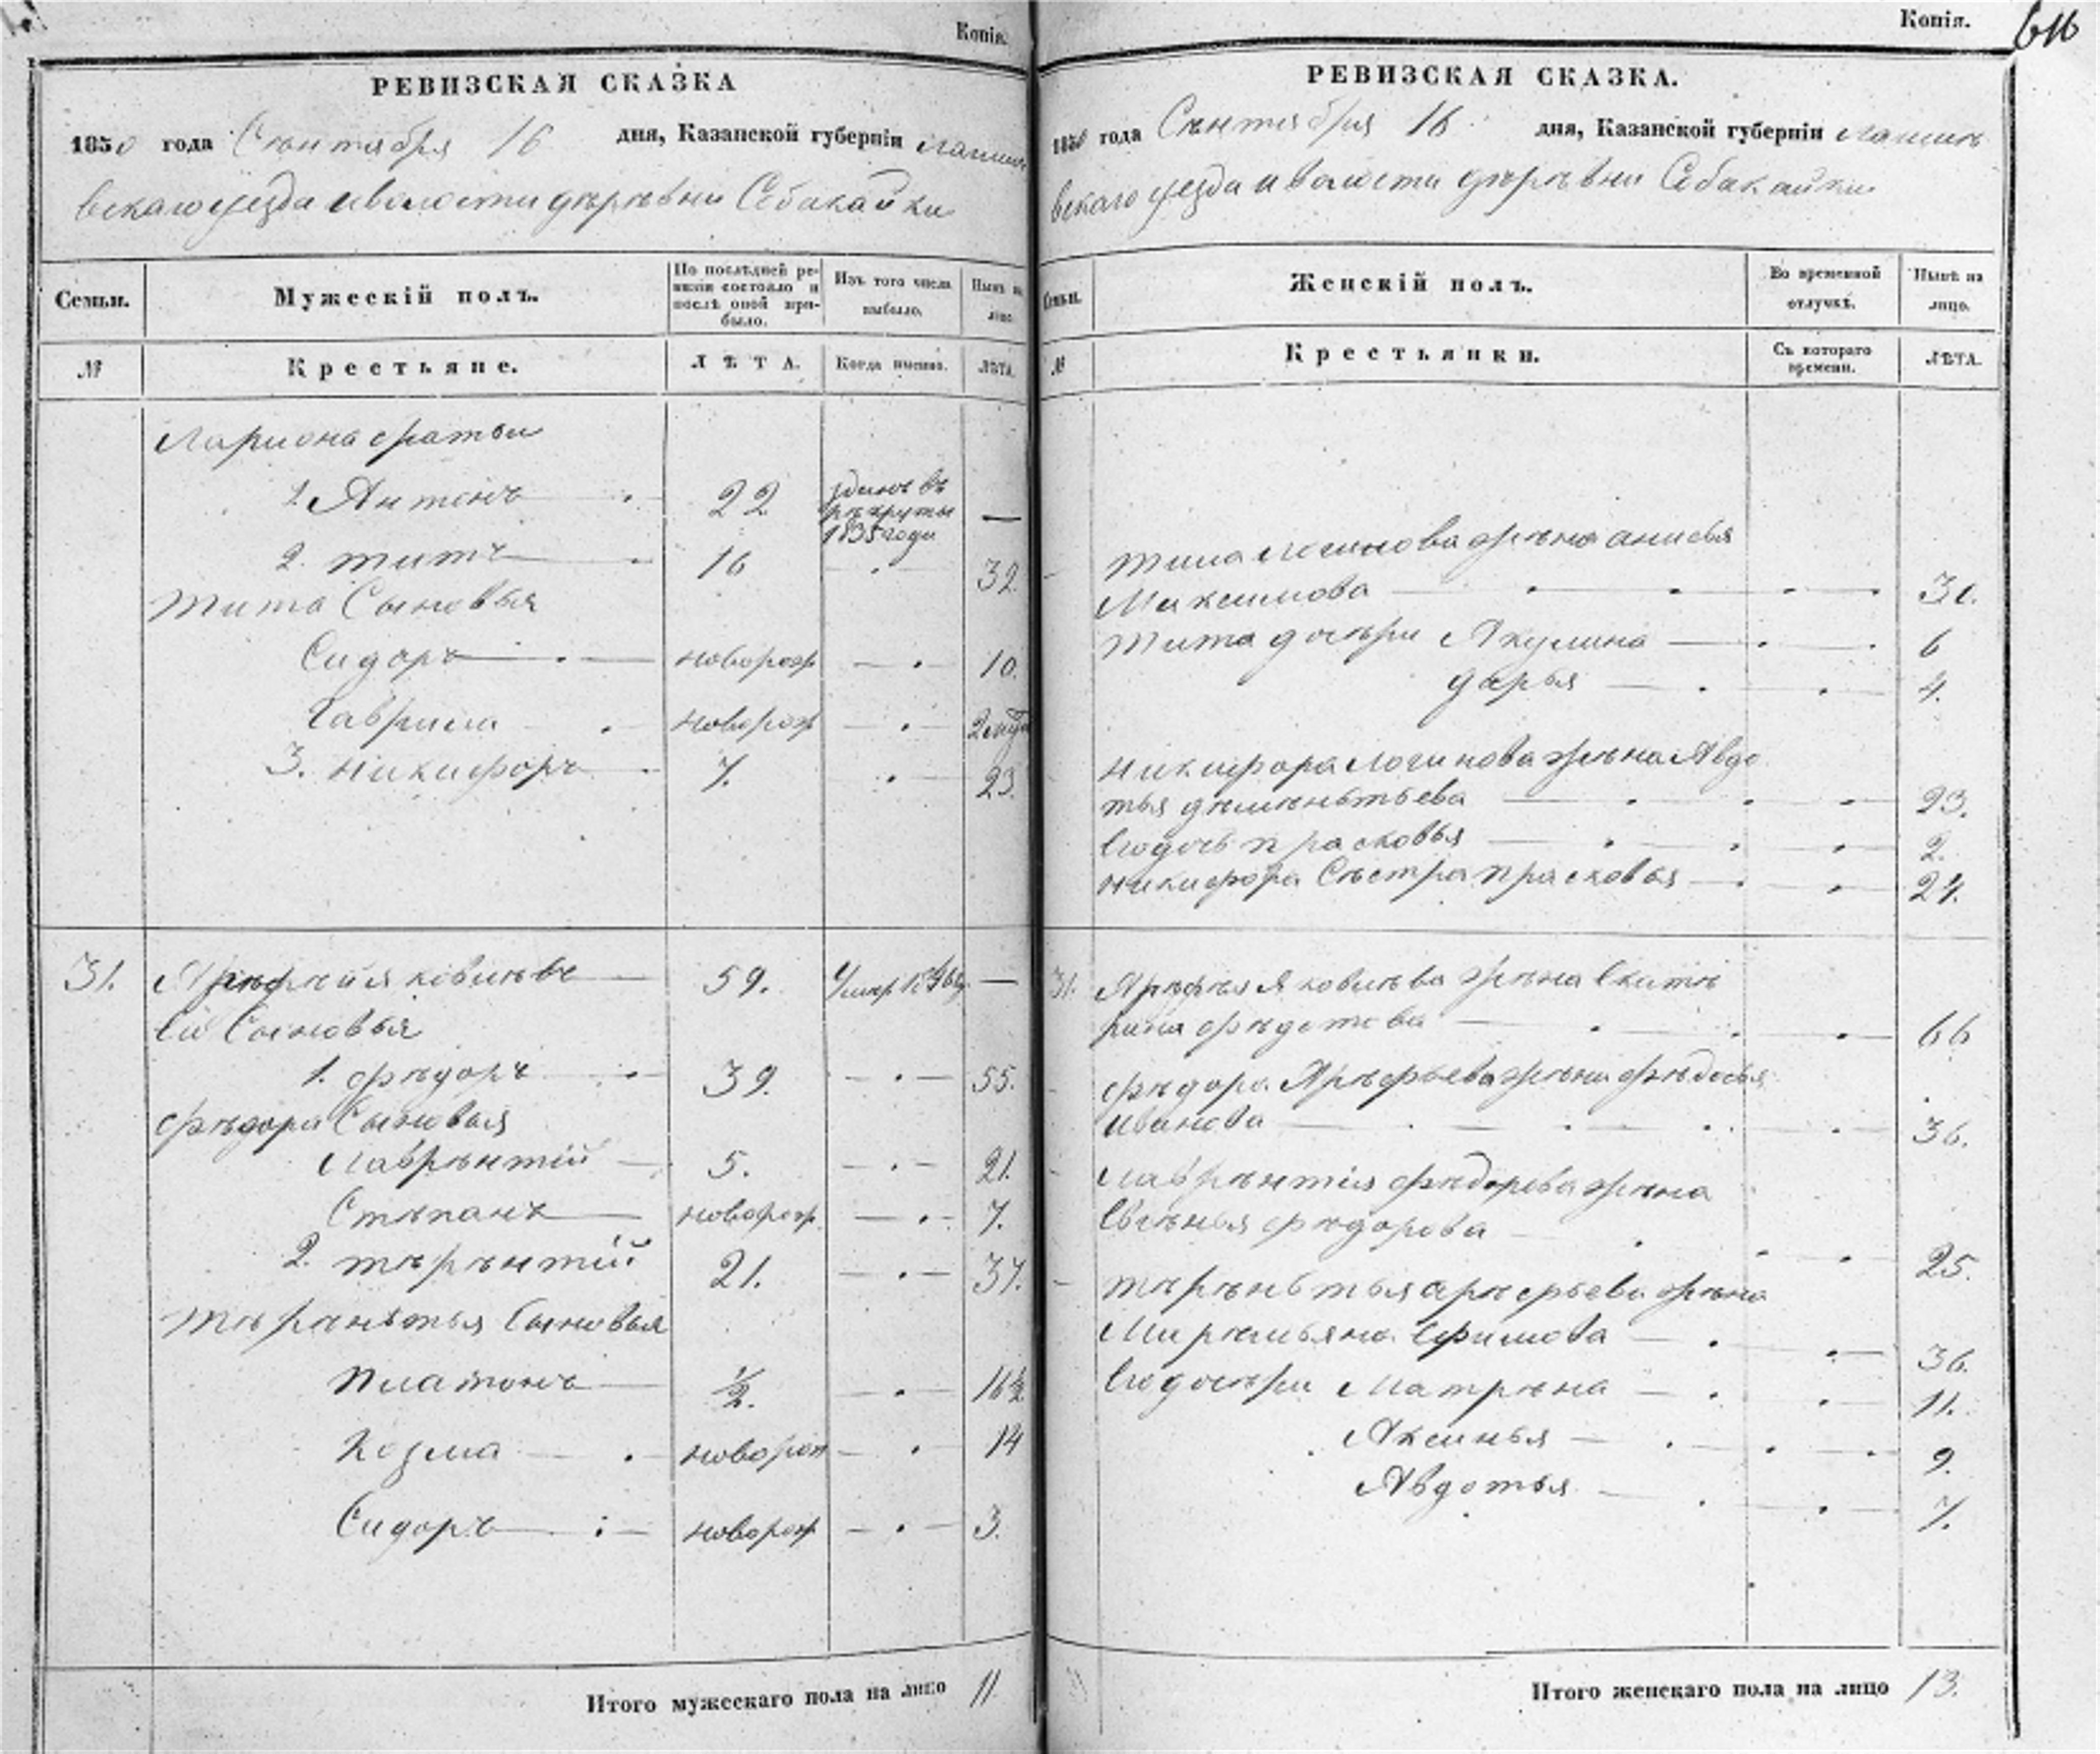 Копія.
РЕВИЗСКАЯ СКАЗКА
1850 года Сентября 16 дня, Казанской губерніи Лаише
вскаго уезда и волости деревни Сабакайки
Семьи. Мужескій полъ. По послѣдней ре-визіи состояло и послѣ оной при-было. Изъ того числа выбыло. Нынѣ на лицо.
№ Крестьяне. ЛѢТА. Когда именно. ЛѢТА.
Лариона братьи
1. Антонъ 22 зданъ въ рекруты 1835 года —
2. титъ 16 32
Тита Сыновья
Сидоръ новорож 10.
Гаврила новорож
3. никифоръ 7. 23.
31. Арефей яковлевъ 59. —
Ей Сыновья
1. федоръ 39. 55.
федора Сыновья
Лаврентій 5. 21.
Степанъ новорож 7.
2. терентій 21. 37.
Терентья Сыновья
платонъ ½. 16½
Козма новорож 14
Сидоръ новорож 3.
Итого мужескаго пола на лицо 11.
Копія.
РЕВИЗСКАЯ СКАЗКА.
1850 года Сентября 16 дня, Казанской губерніи Лаише
вскаго уезда и волости деревни Сабакайки
Семьи. Женскій полъ. Во временной отлучкѣ. Нынѣ на лицо.
№ Крестьянки. Съ котораго времени. ЛѢТА.
Тита Логинова жена анисья
Максимова 31.
Тита дочери Акулина 6
дарья 4.
никифора логинова жена Авдо
тья дементьева 23.
Егодочь прасковья 2.
никифора Сестра прасковья 24.
31. Арефья Яковлева жена Екате
рина федотова 66
федора Арефьева жена федосья
иванова 36.
Лаврентія федорова жена
Евгенья федорова 25.
терентья арефьева жена
Маремьяна Ефимова 36.
Егодочери Матрена 11.
Аксинья 9.
Авдотья 7.
Итого женскаго пола на лицо 13.